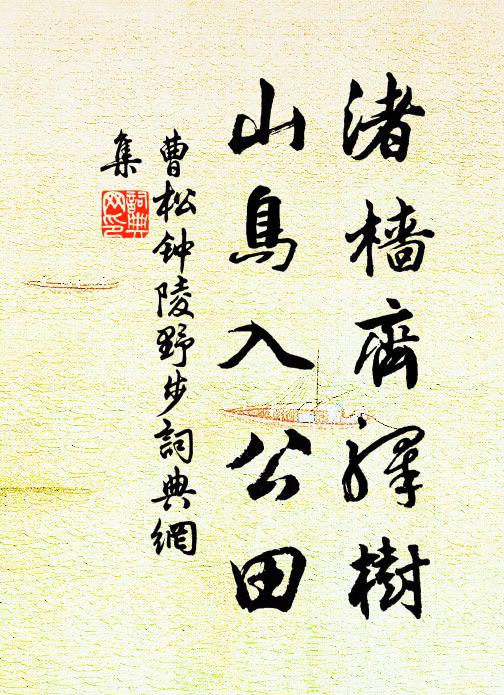 渚檣齊驛樹
山鳥入公田
曹松钟陵野步詞典網
集
詞典
网印